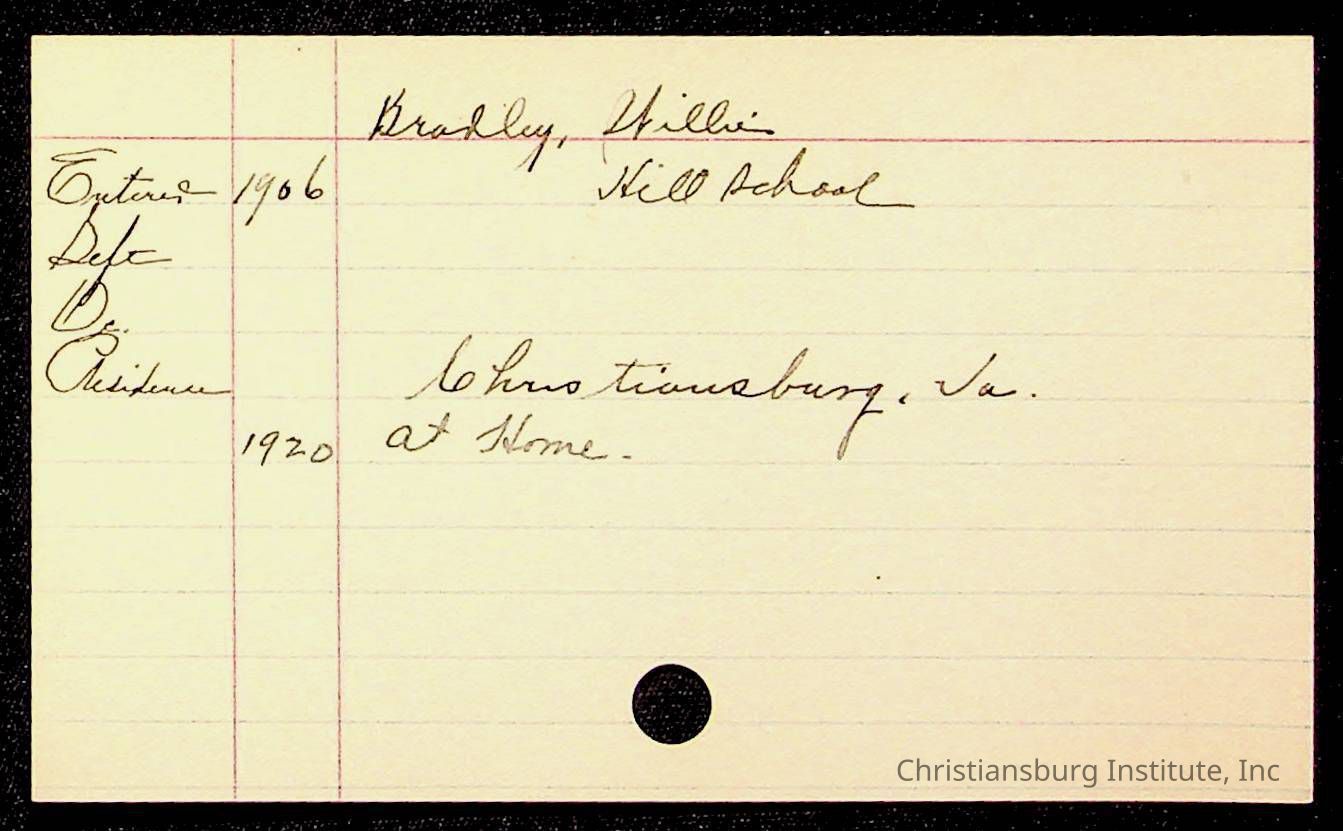 Bradley, Willie
Entered 1906 Hill School
Left
Do.
Residence Christiansburg, Va.
1920 at Home.
Christiansburg Institute, Inc